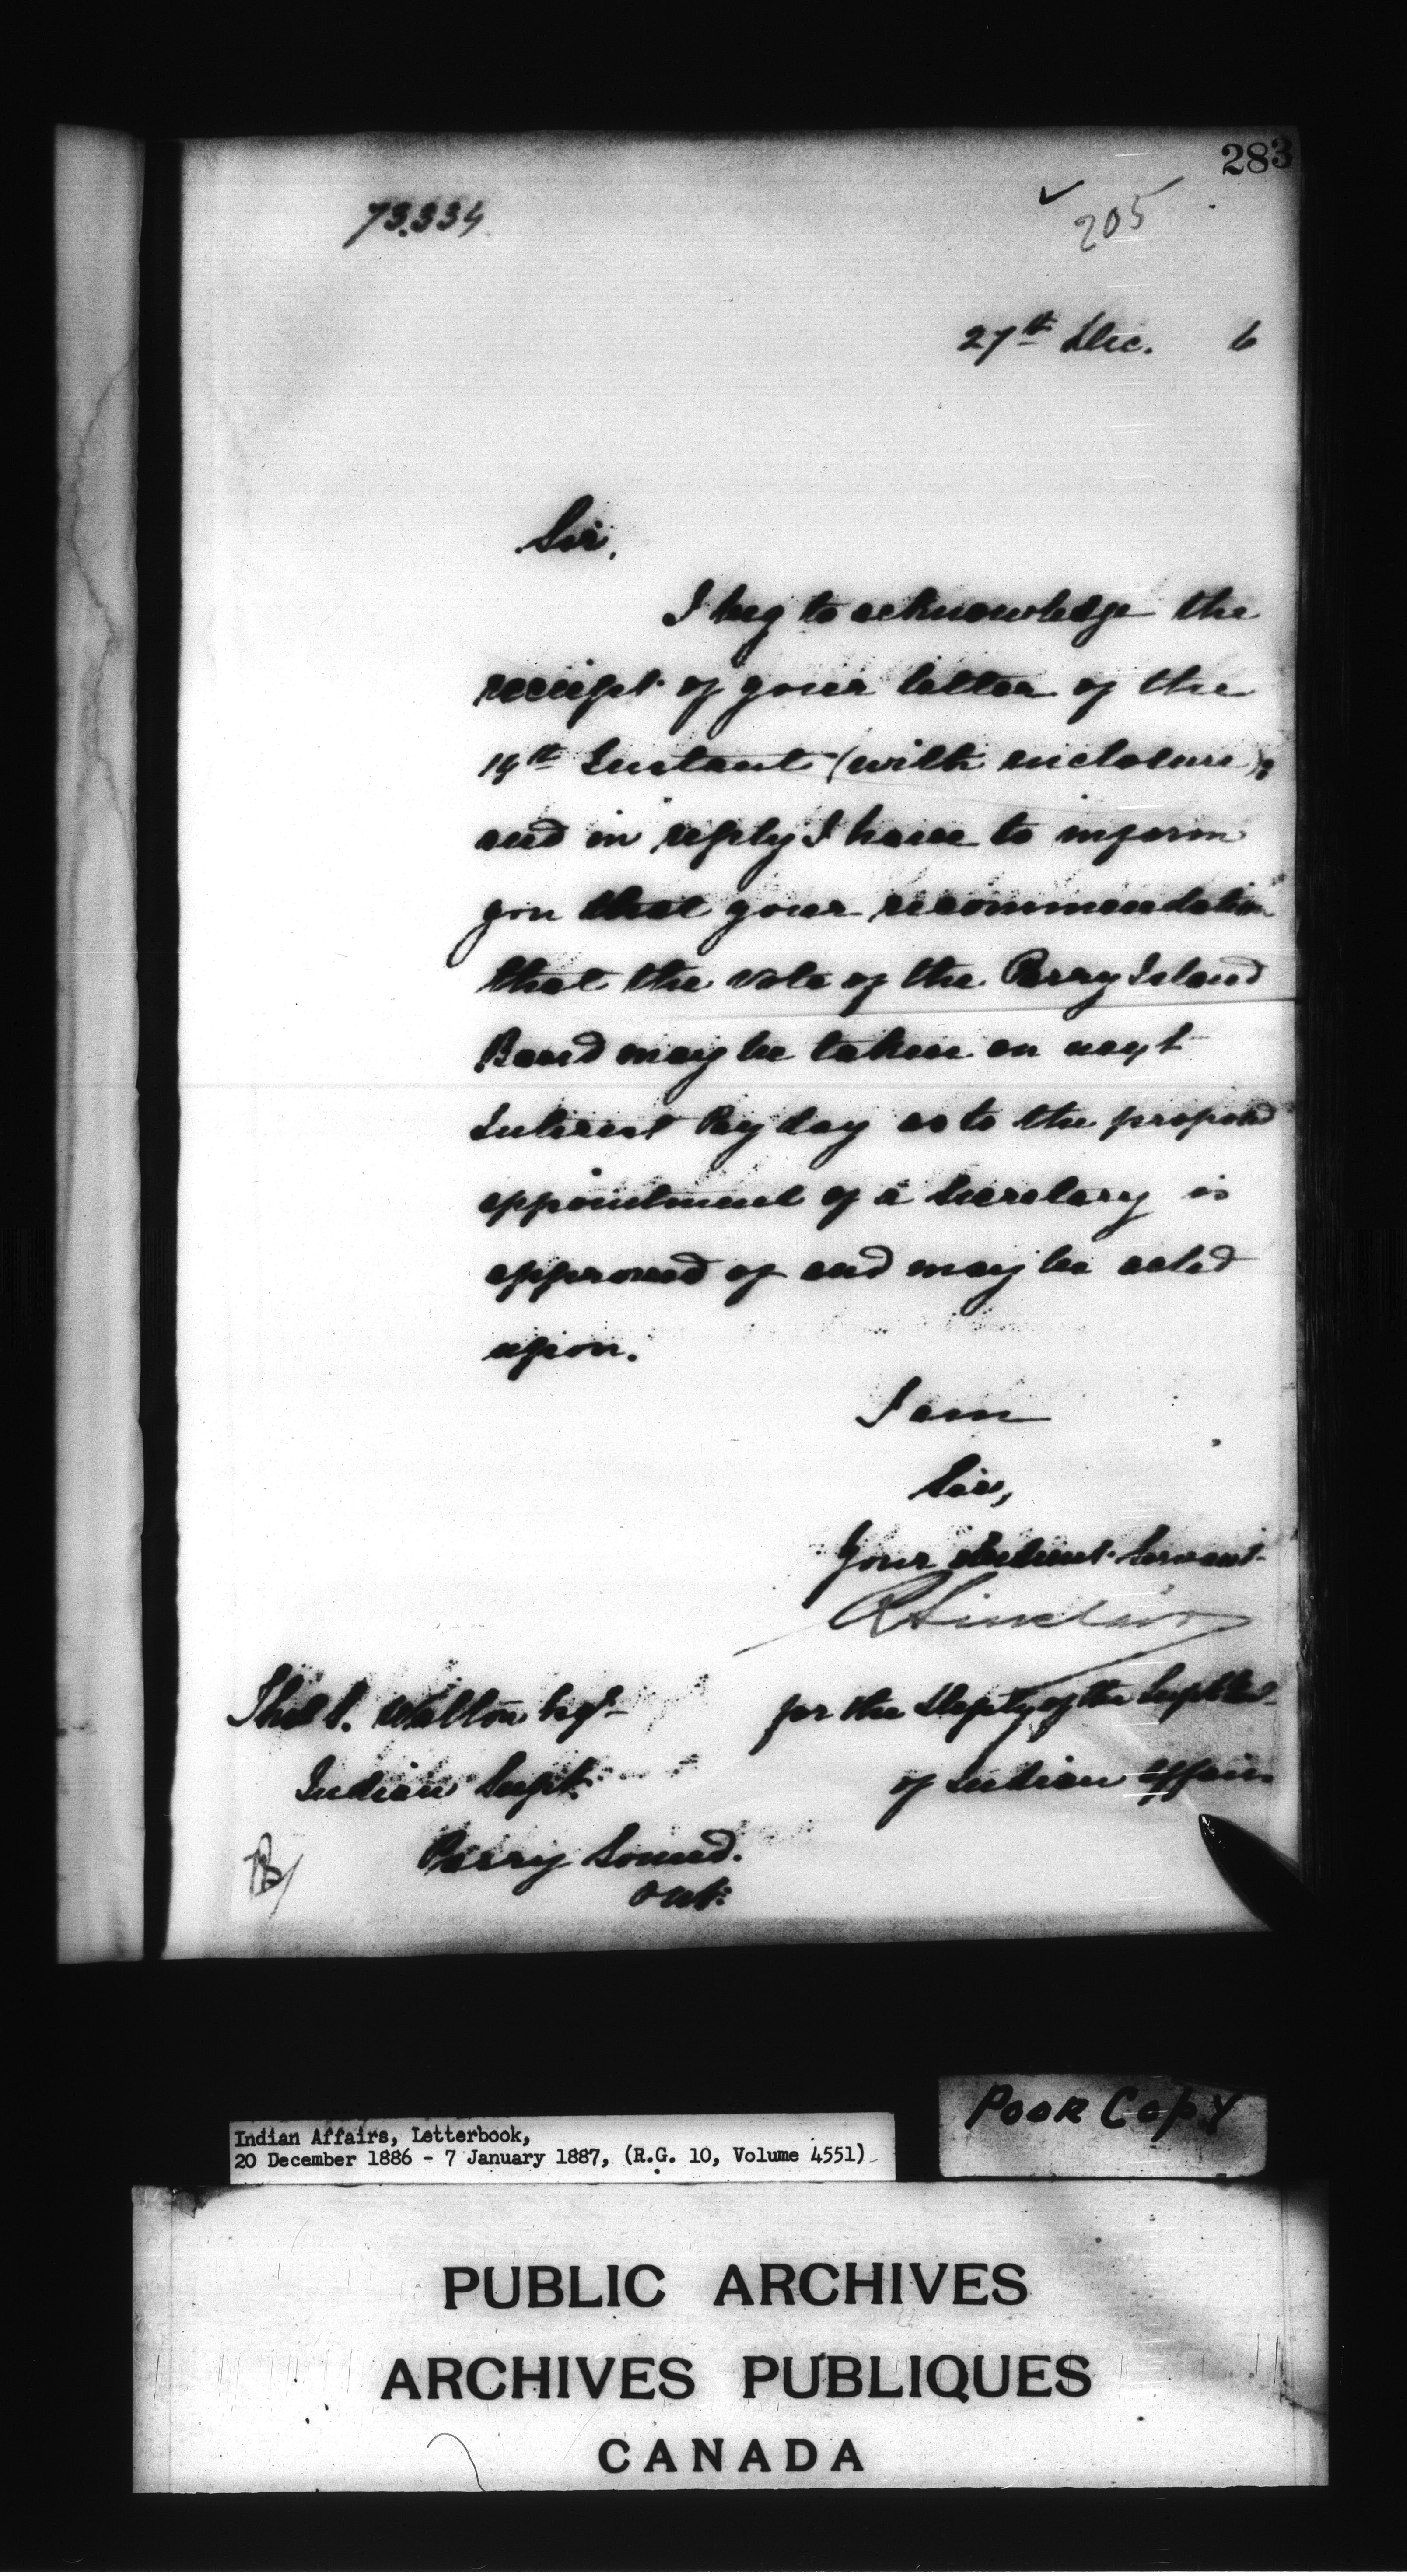 283
73.334
205
27th Dec. 6
Sir,
I beg to acknowledge the
receipt of your letter of the
14th Instant (with enclosure);
and in reply I have to inform
you that your recommendation
that the vote of the Parry Island
Band may be taken on next
Interest Pay day as to the proposed
appointment of a Secretary is
approved of and may be acted
upon.
I am
Sir,
Your obedient Servant
R Sinclair
for the Deputy of the Supt Genl
of Indian Affairs
Thos S. Walton Esqr
Indian Supt.
Parry Sound.
Ont.
Poor Copy
Indian Affairs, Letterbook,
20 December 1886 - 7 January 1887, (R.G. 10, Volume 4551)
PUBLIC ARCHIVES
ARCHIVES PUBLIQUES
CANADA